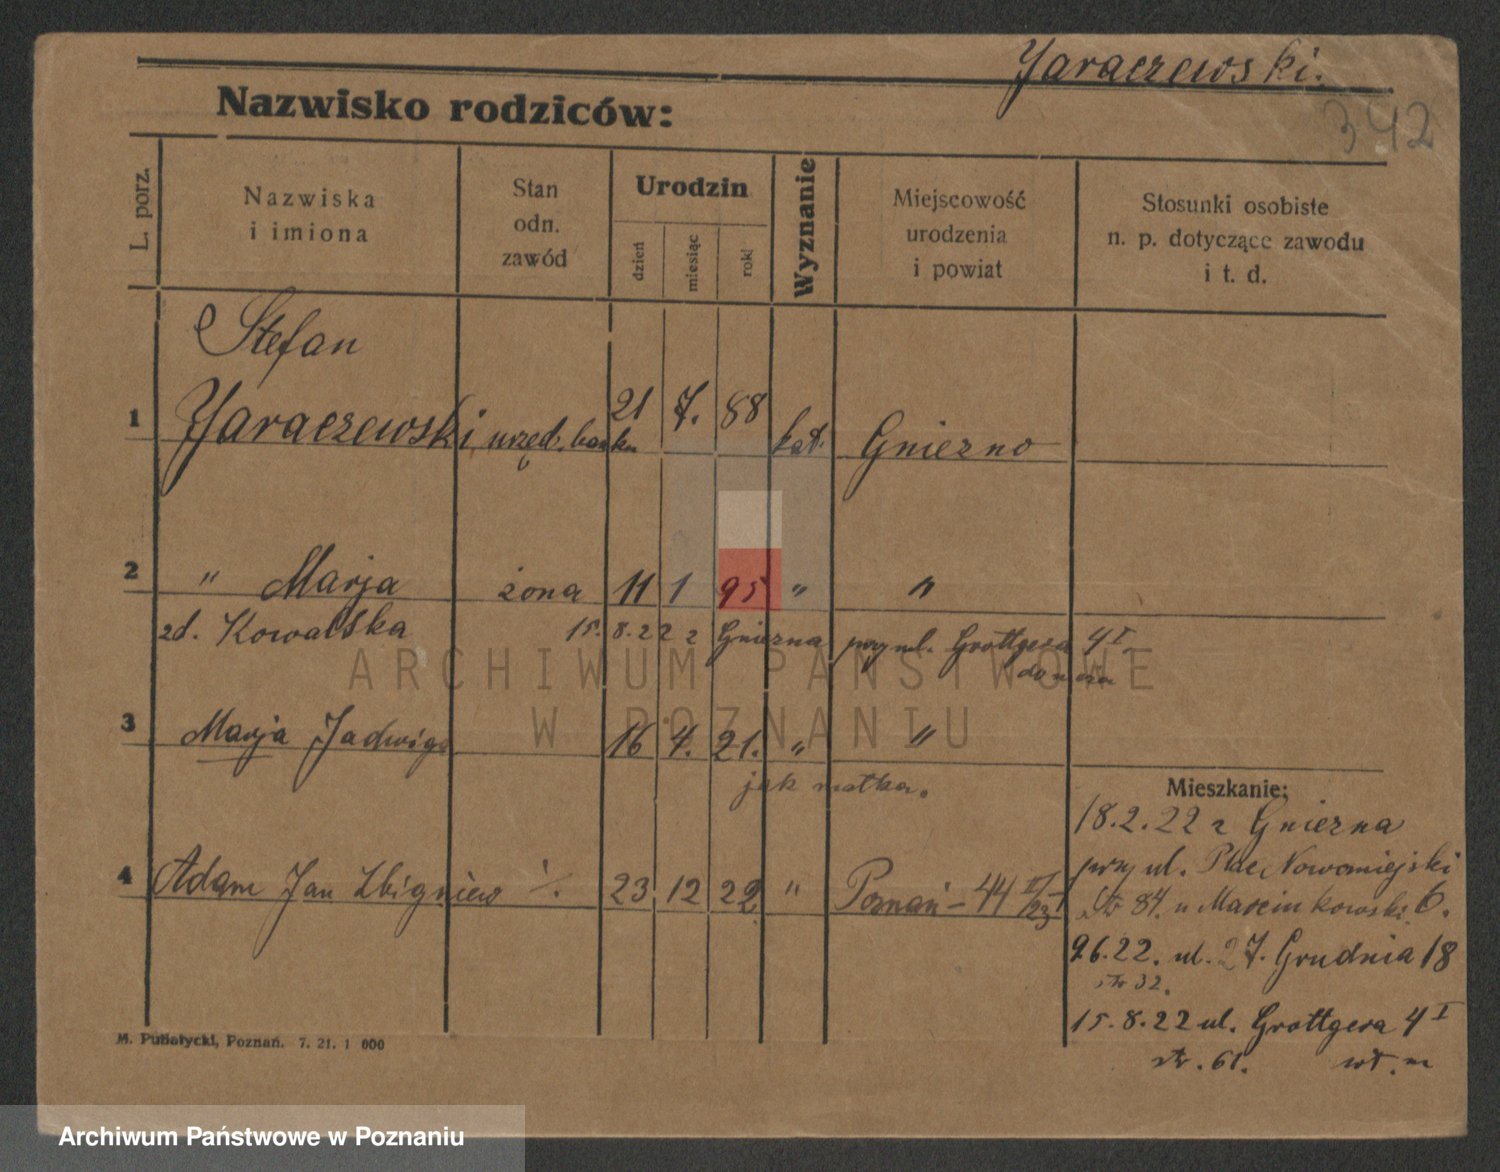 Jaraczewski.
Nazwisko rodziców:
342
L. porz.
Nazwiska
i imiona
Stan
odn.
zawód
Urodzin
dzień
miesiąc
rok
Wyznanie
Miejscowość
urodzenia
i powiat
Stosunki osobiste
n. p. dotyczące zawodu
i t. d.
Stefan
1 Jaraczewski urzęd. banku 21 7. 88 kat. Gniezno
2 " Marja żona 11 1 95 " "
zd. Kowalska 15. 8. 22 z Gniezna przy ul. Grottgera 4 I
ARCHIWUM PAŃSTWOWE
W POZNANIU
3 Marja Jadwiga 16 4. 21. " "
jak matka.
Mieszkanie:
18.2.22 z Gniezna
przy ul. Plac Nowomiejski
4 Adam Jan Zbigniew 23 12 22 " Poznań – 44
84. u Marcinkowski 6.
9.6.22. ul. 27. Grudnia 18
str 32.
15.8.22 ul. Grottgera 4 I
str. 61.
M. Pubałycki, Poznań. 7. 21. 1 000
Archiwum Państwowe w Poznaniu